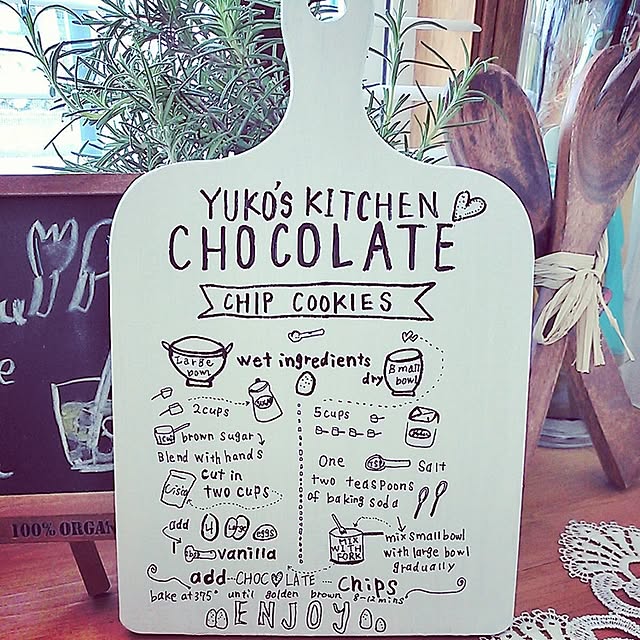 YUKO'S KITCHEN
CHOCOLATE
CHIP COOKIES
Large bowl
wet ingredients
dry
Small bowl
2 cups
brown sugar
Blend with hands
cut in
two cups
add 4 eggs
vanilla
5 cups
One
Salt
two teaspoons
of baking soda
MIX
WITH
FORK
mix small bowl
with large bowl
gradually
add CHOCOLATE chips
bake at 375° until golden brown 8-12 mins
ENJOY
100% ORGAN